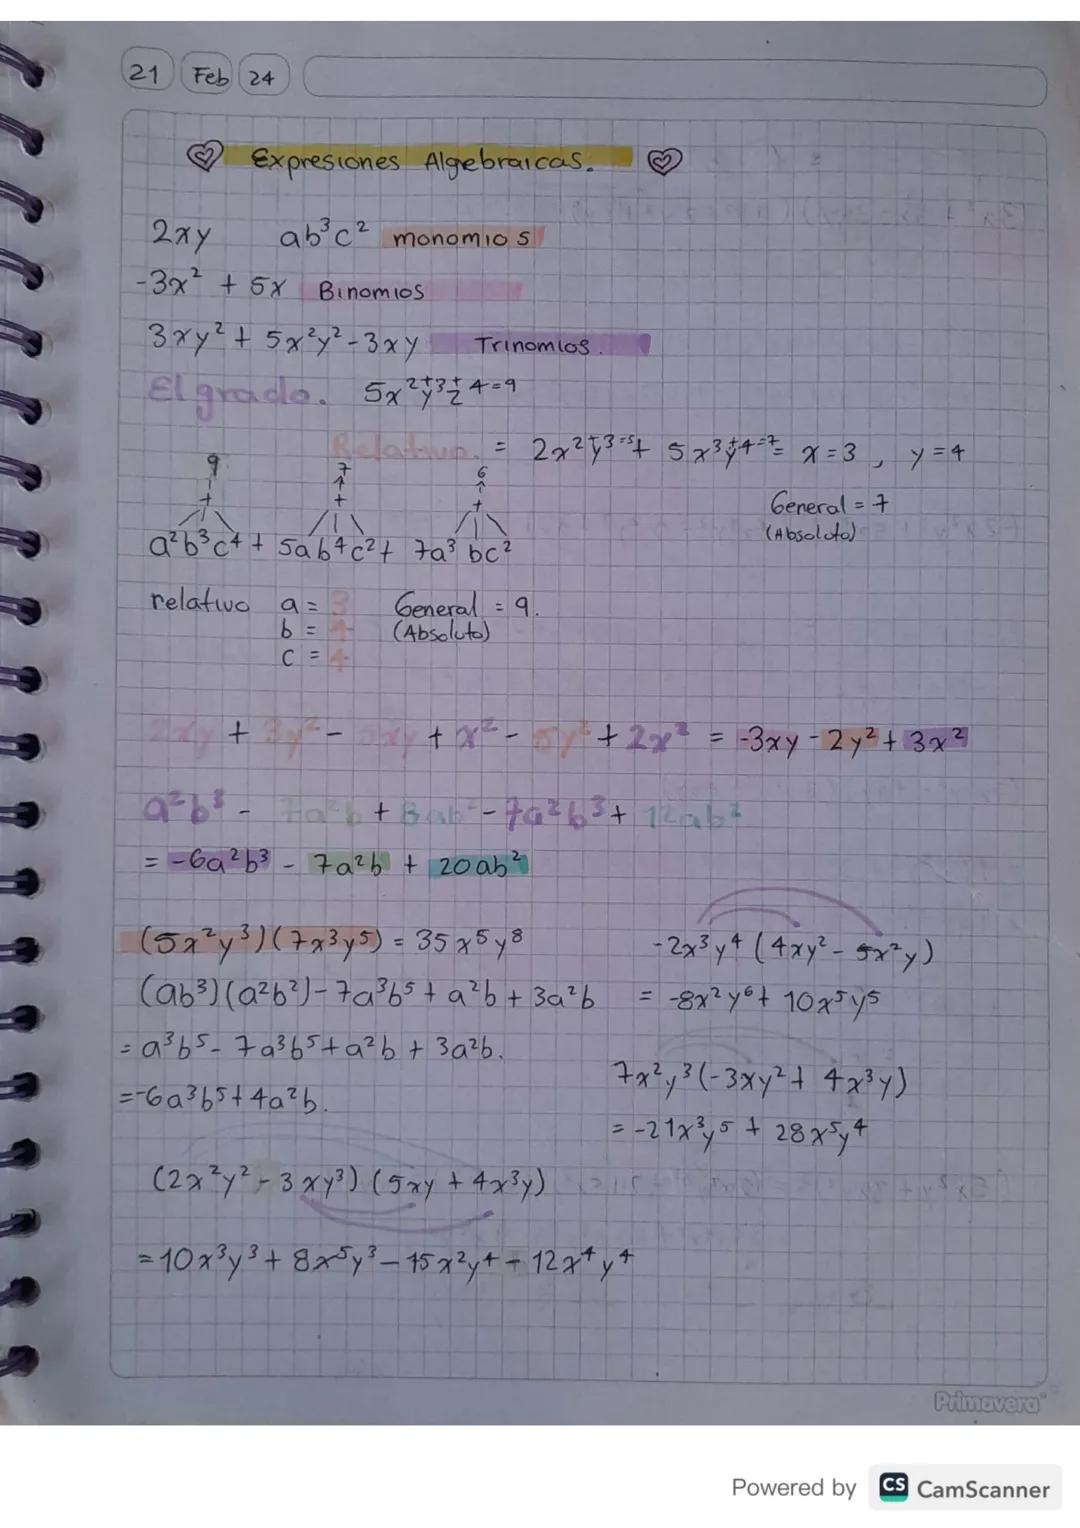 21 Feb 24
Expresiones Algebraicas.
2xy ab³c² monomios
-3x² + 5x Binomios
3xy² + 5x²y² - 3xy Trinomios.
El grado. 5x²⁺y³⁺z⁴⁼⁹
Relativo. = 2x²⁺y³⁼⁵ + 5x³⁺y⁴⁼⁷ = x = 3 , y = 4
9 7 6
+ + +
General = 7
(Absoluto)
a²b³c⁴ + 5ab⁴c² + 7a³bc²
relativo a = 3 General = 9.
b = 4 (Absoluto)
c = 4
2xy + 3y² - 5xy + x² - 5y² + 2x² = -3xy - 2y² + 3x²
a²b³ - 7a²b + 8ab² - 7a²b³ + 12ab²
= -6a²b³ - 7a²b + 20ab²
(5x²y³)(7x³y⁵) = 35x⁵y⁸
(ab³)(a²b²) - 7a³b⁵ + a²b + 3a²b
= a³b⁵ - 7a³b⁵ + a²b + 3a²b.
= -6a³b⁵ + 4a²b.
-2x³y⁴ (4xy² - 5x²y)
= -8x²y⁶ + 10x⁵y⁵
7x²y³ (-3xy² + 4x³y)
= -21x³y⁵ + 28x⁵y⁴
(2x²y² - 3xy³) (5xy + 4x³y)
= 10x³y³ + 8x⁵y³ - 15x²y⁴ - 12x⁴y⁴
Primavera
Powered by CS CamScanner